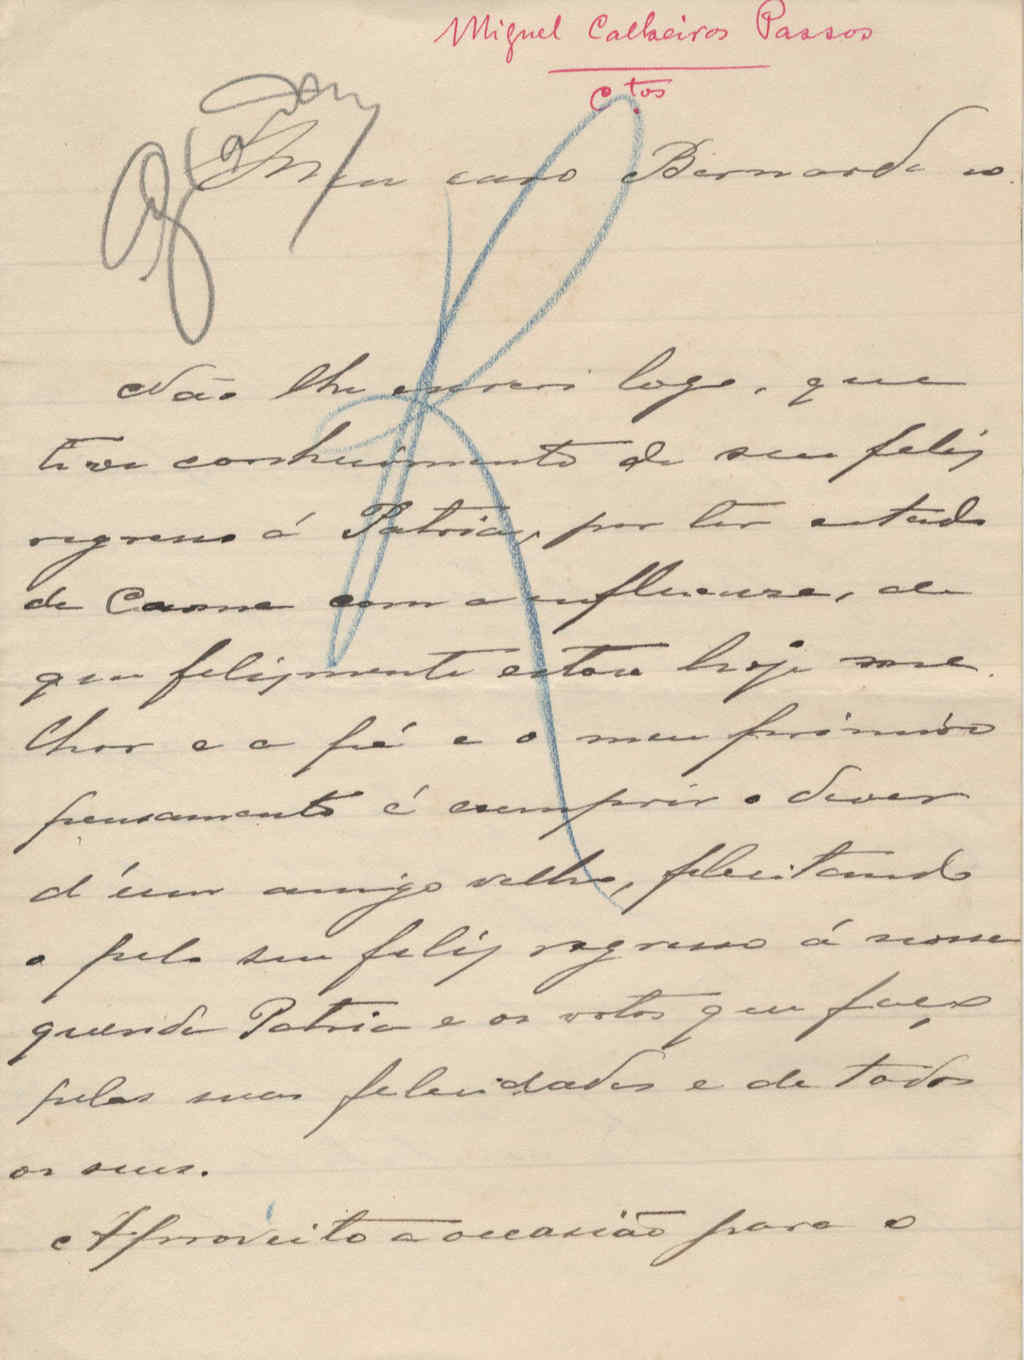 Miguel Calheiros Passos
C.tos
Meu caro Bernardino.
Não lhe escrevi logo, que
tive conhecimento do seu feliz
regresso á Patria, por ter estado
de Cama com a influenza, de
que felizmente estou hoje me
lhor e a pé e o meu primeiro
pensamento é cumprir o dever
d'um amigo velho, felicitando
o pelo seu feliz regresso á nossa
querida Patria e os votos que faço
pelas suas felicidades e de todos
os seus.
Aproveito a occasião para o